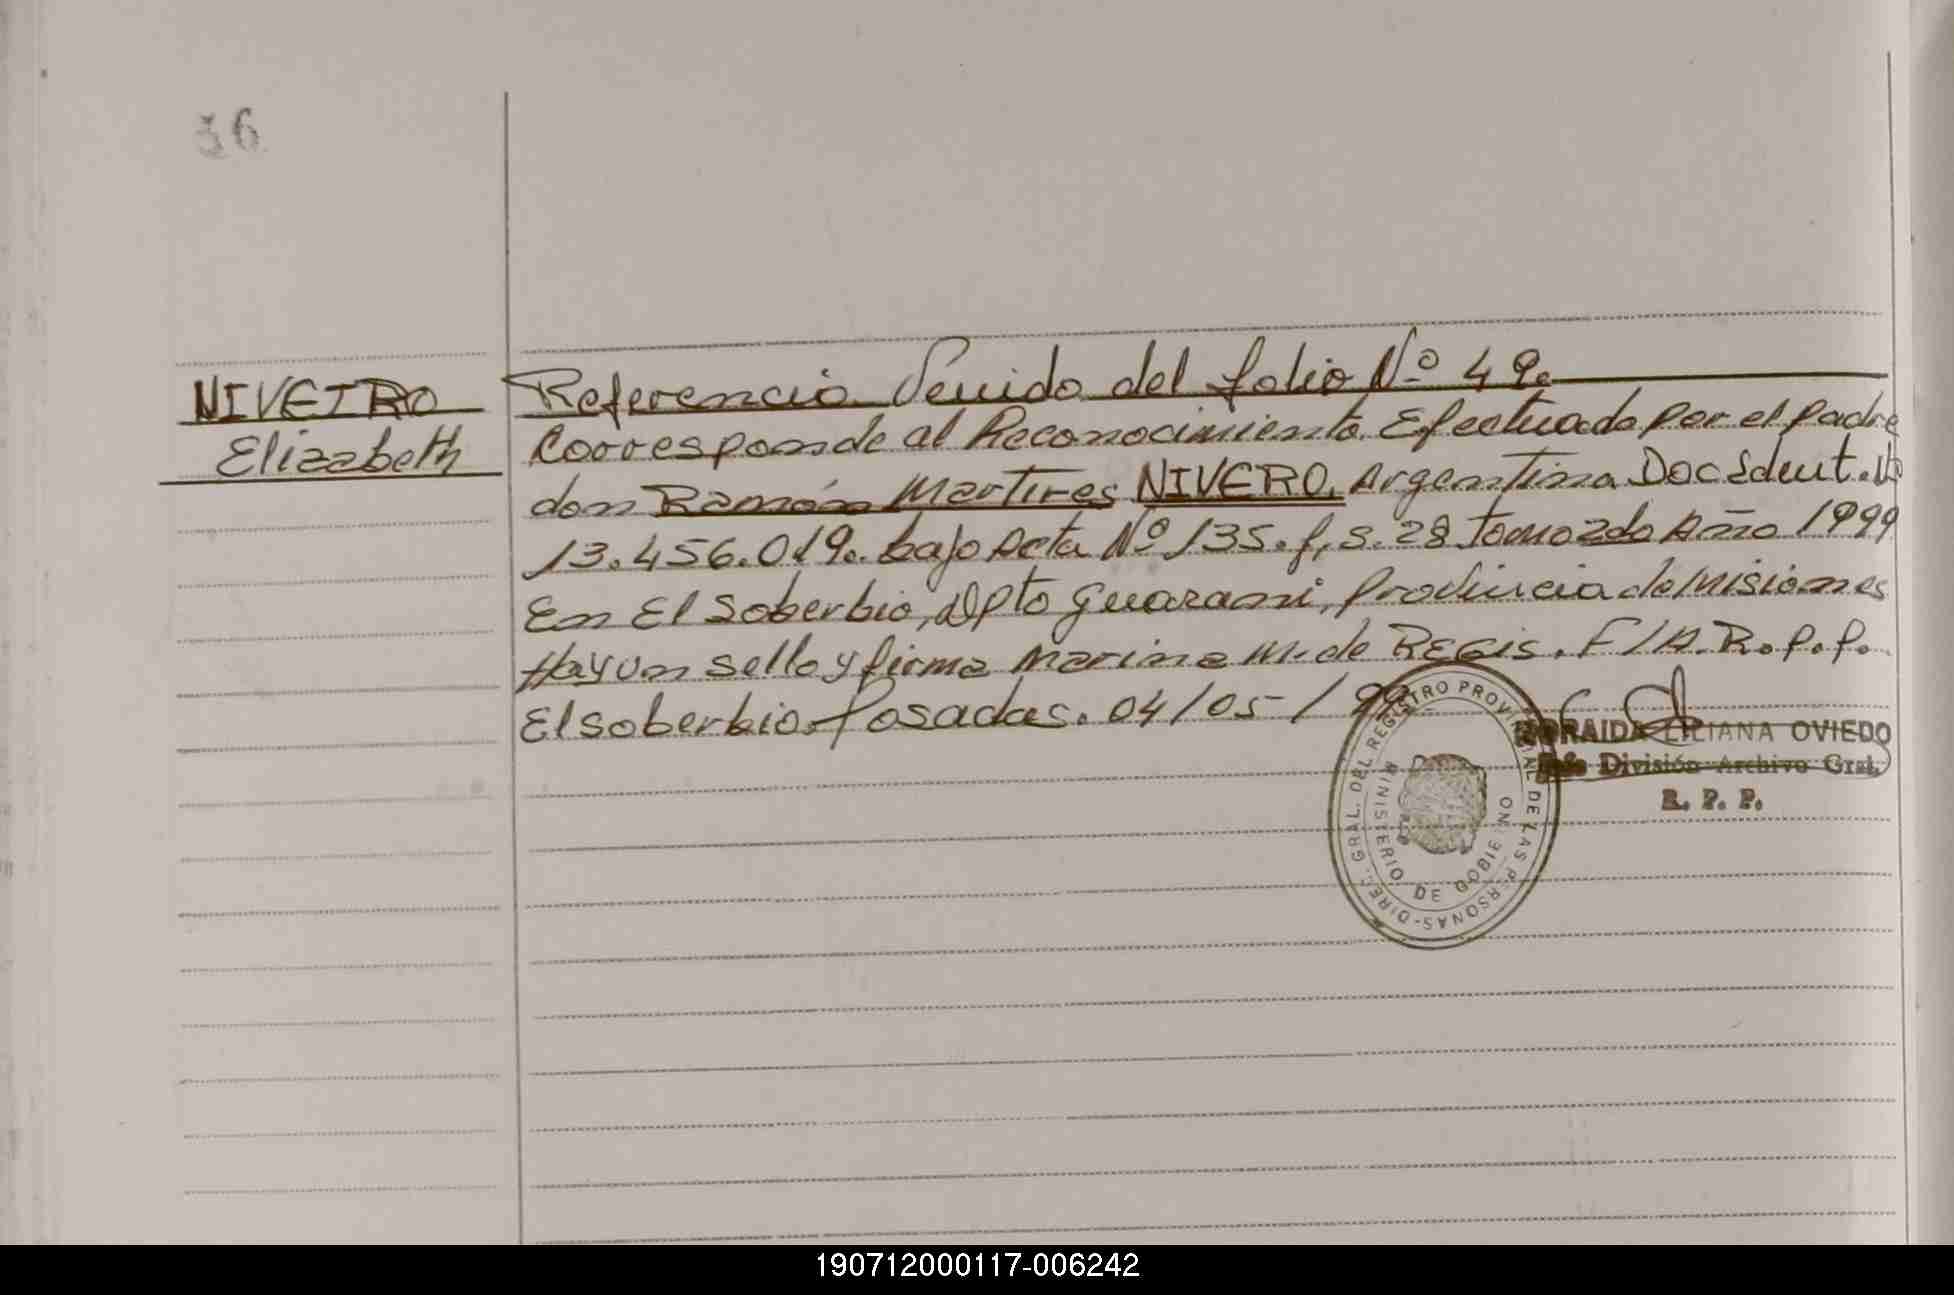 36
NIVEIRO
Elizabeth
Referencia Venida del folio Nº 49.
Corresponde al Reconocimiento Efectuado por el padre
don Ramón Martires NIVERO, Argentina Doc Ident. Nº
13.456.019. bajo Acta Nº 135. f, s. 28 Tomo 2do Año 1999
En El Soberbio, Dpto Guarani, Provincia de Misiones
Hay un sello y firma Marina M. de REGIS. F/A. R. P. P.
El Soberbio. Posadas. 04/05/99
DIREC. GRAL. DEL REGISTRO PROVINCIAL DE LAS PERSONAS
MINISTERIO DE GOBIERNO
LILIANA OVIEDO
División Archivo Gral.
R. P. P.
190712000117-006242